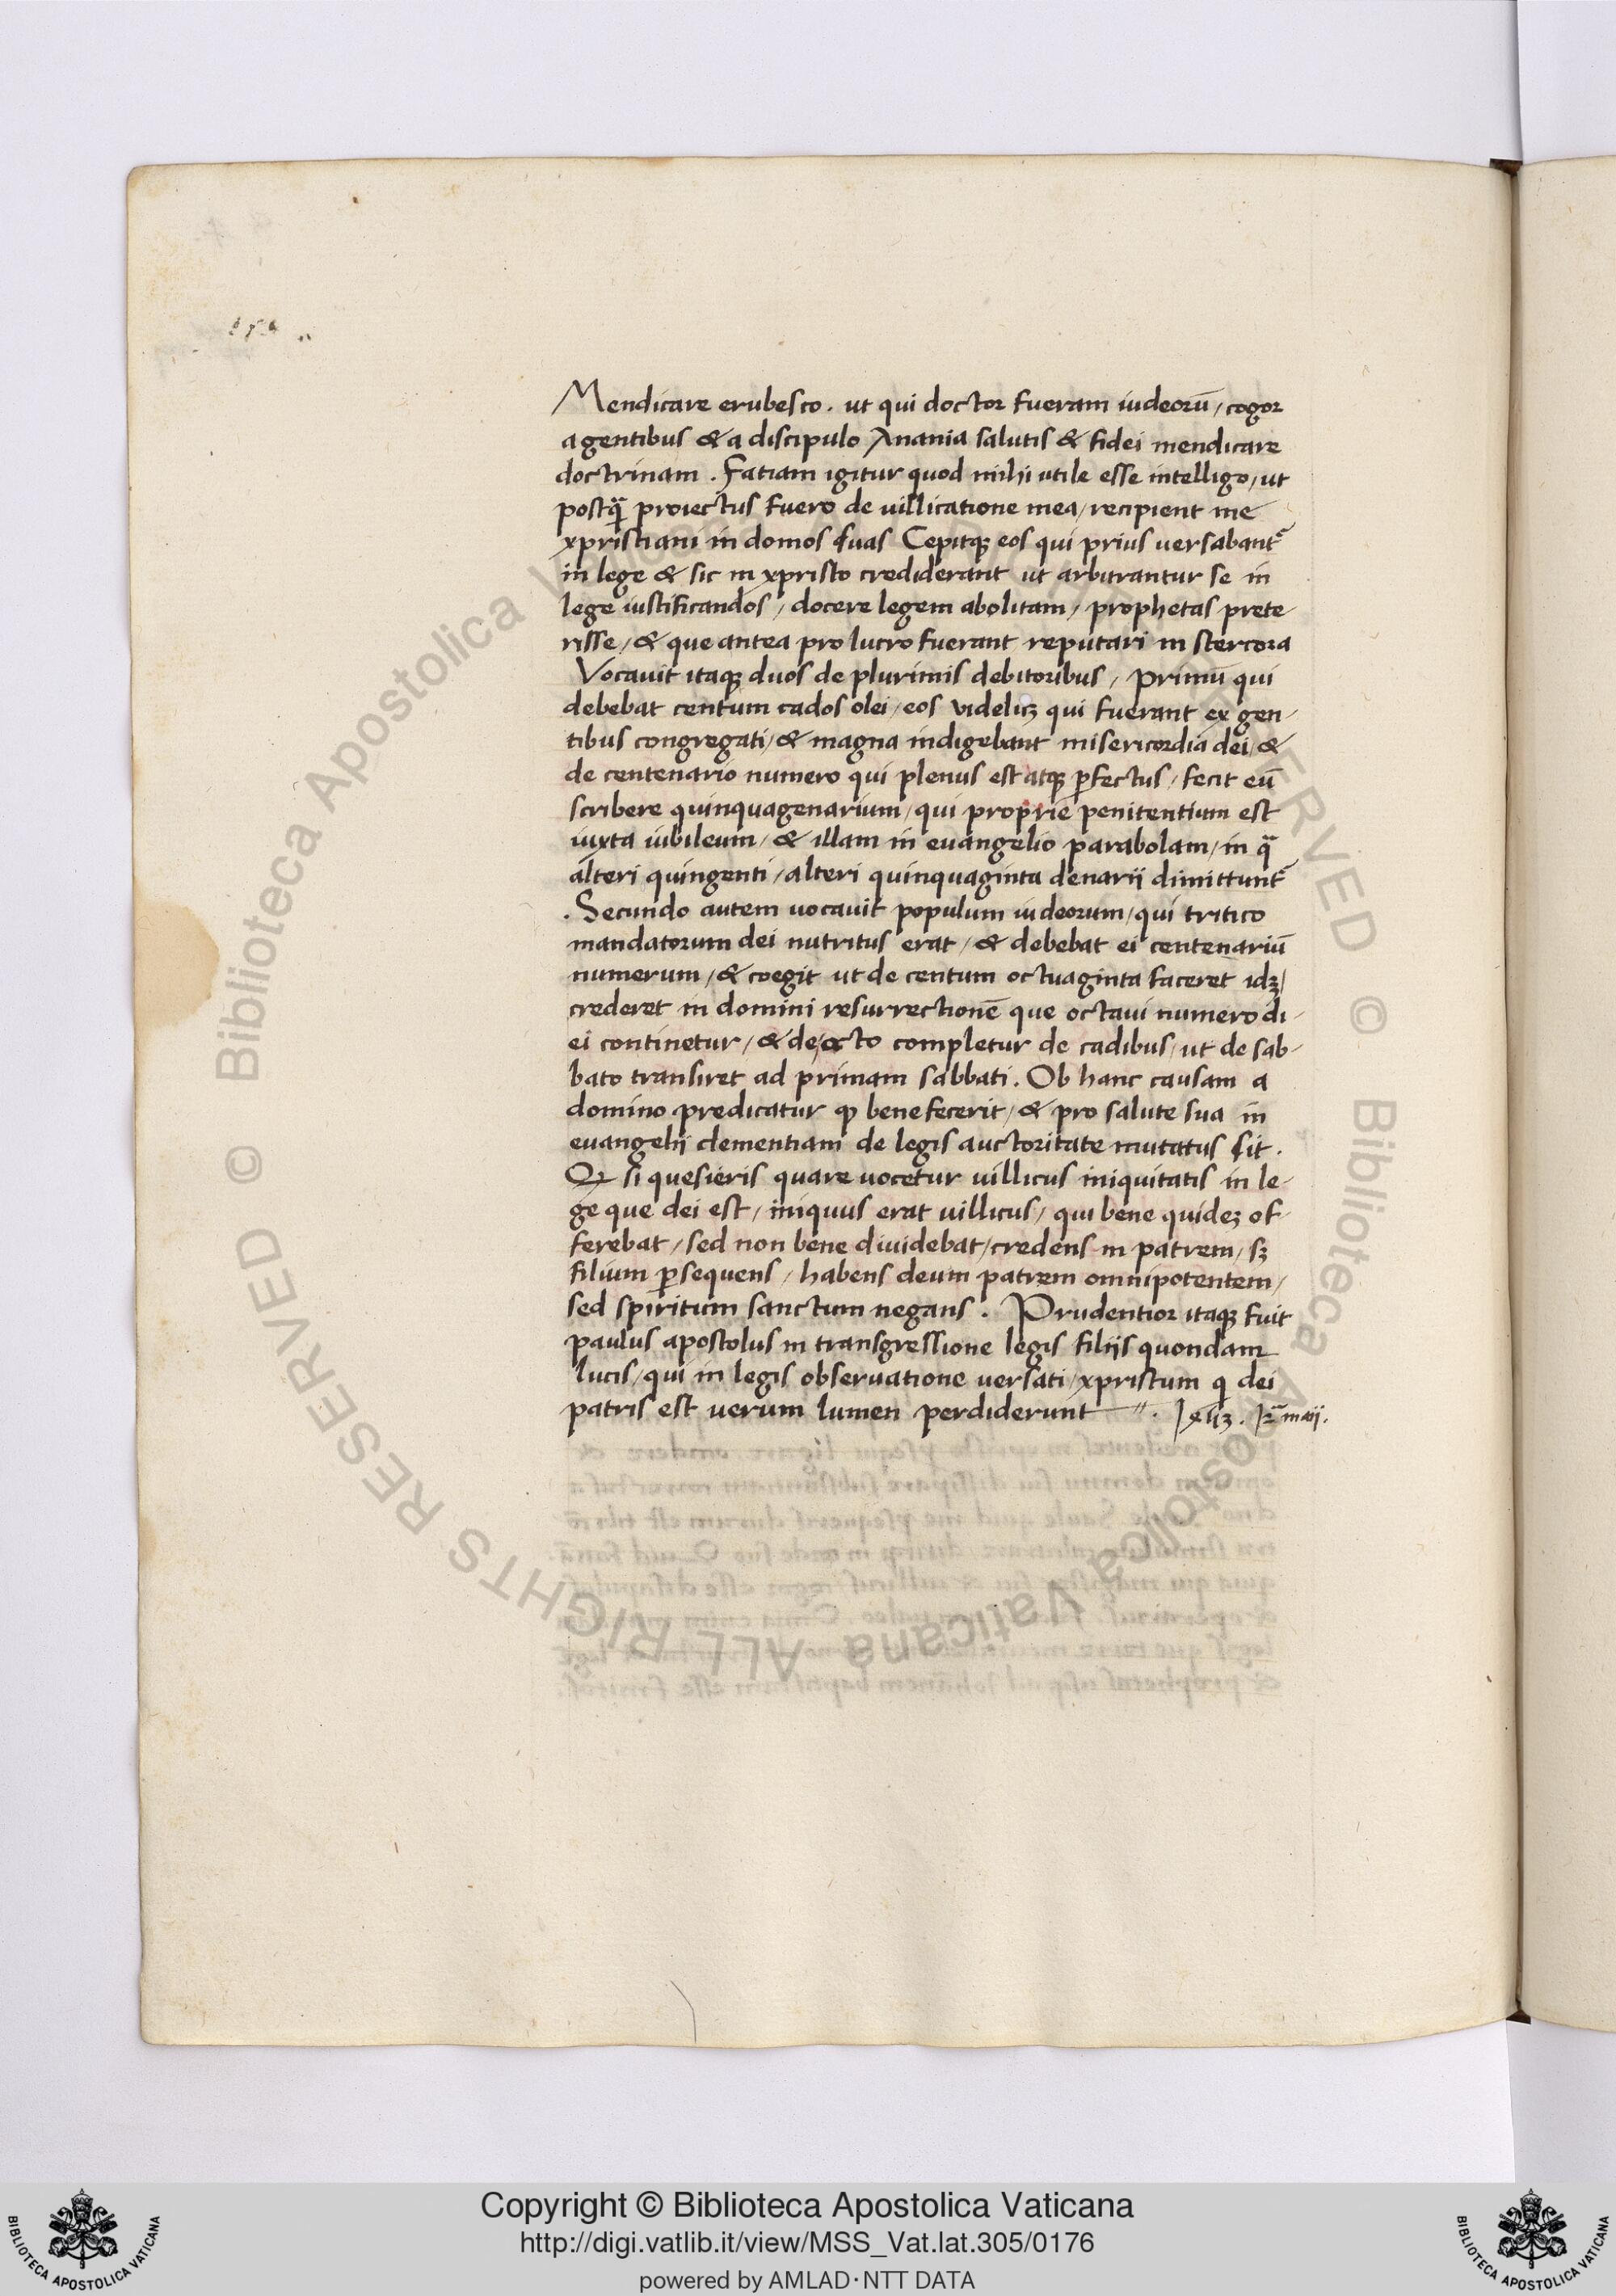 Mendicare erubesco. ut qui doctor fueram iudeorū / cogor
a gentibus & a discipulo Anania salutis & fidei mendicare
doctrinam. Fatiam igitur quod mihi utile esse intelligo / ut
postq̄ proiectus fuero de uillicatione mea / recipient me
xpristiani in domos suas Cepitqꝫ eos qui prius uersabant᷑
in lege & sic in xpristo crediderant ut arbitrantur se in
lege iustificandos / docere legem abolitam / prophetas prete
risse / & que antea pro lucro fuerant reputari in stercora
Vocauit itaqꝫ duos de plurimis debitoribus / Primū qui
debebat centum cados olei / eos videlicꝫ qui fuerant ex gen-
tibus congregati / & magna indigebant misericordia dei / &
de centenario numero qui plenus est atqꝫ ꝑfectus / fecit eū
scribere quinquagenarium / qui proprie penitentium est
iuxta iubileum / & illam in euangelio parabolam / in q̄
alteri quingenti / alteri quinquaginta denarii dimittunt᷑
. Secundo autem uocauit populum iudeorum / qui tritico
mandatorum dei nutritus erat / & debebat ei centenariū
numerum / & coegit ut de centum octuaginta faceret idꝫ /
crederet in domini resurrectionē que octaui numero di-
ei continetur / & de octo completur de cadibus / ut de sab-
bato transiret ad primam sabbati. Ob hanc causam a
domino predicatur ꝙ bene fecerit / & pro salute sua in
euangelii clementiam de legis auctoritate mutatus sit.
Qꝫ si quesieris quare uocetur uillicus iniquitatis in le-
ge que dei est / iniquus erat uillicus / qui bene quideꝫ of-
ferebat / sed non bene diuidebat / credens in patrem / sꝫ
filium ꝑsequens / habens deum patrem omnipotentem /
sed spiritum sanctum negans. Prudentior itaqꝫ fuit
paulus apostolus in transgressione legis filiis quondam
lucis / qui in legis obseruatione uersati / xpristum q dei
patris est uerum lumen perdiderunt //.
Biblioteca Apostolica Vaticana ALL RIGHTS RESERVED ©
Copyright © Biblioteca Apostolica Vaticana
http://digi.vatlib.it/view/MSS_Vat.lat.305/0176
powered by AMLAD·NTT DATA
BIBLIOTECA APOSTOLICA VATICANA
BIBLIOTECA APOSTOLICA VATICANA